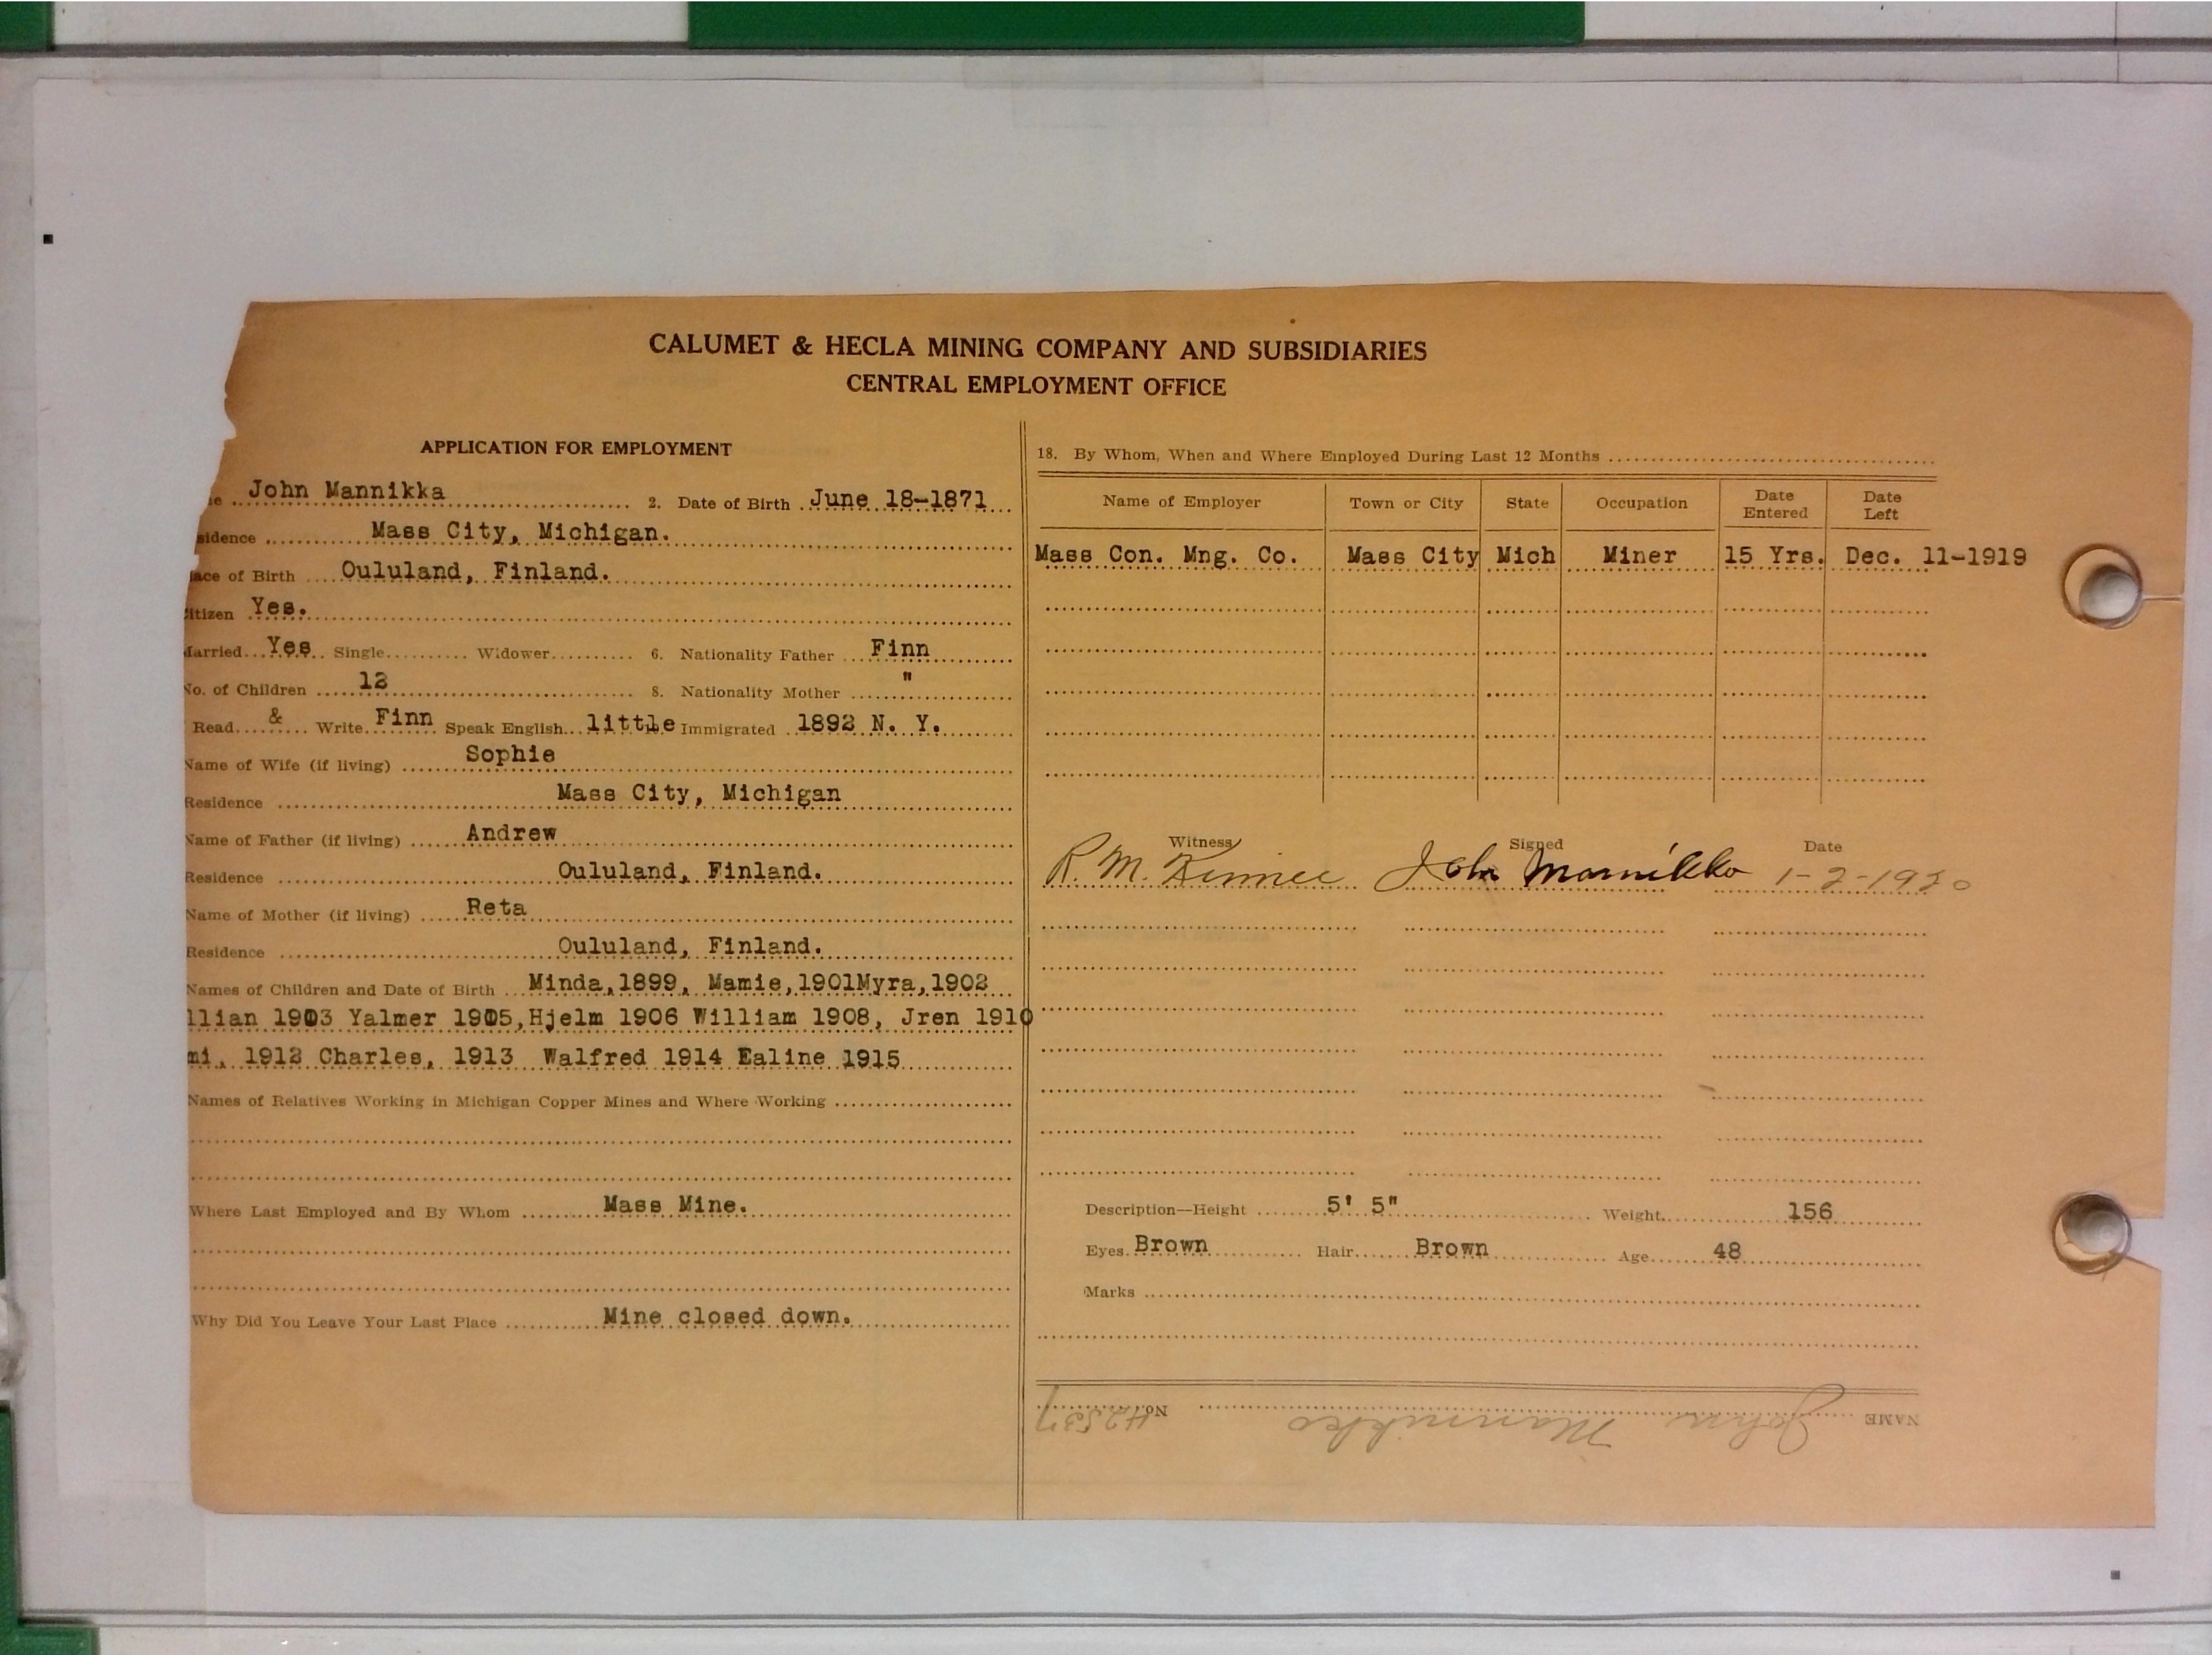 CALUMET & HECLA MINING COMPANY AND SUBSIDIARIES
CENTRAL EMPLOYMENT OFFICE
APPLICATION FOR EMPLOYMENT
e John Mannikka 2. Date of Birth June 18-1871
sidence Mass City, Michigan.
ace of Birth Oululand, Finland.
itizen Yes.
Married Yes Single Widower 6. Nationality Father Finn
No. of Children 12 8. Nationality Mother "
Read & Write Finn Speak English little Immigrated 1892 N. Y.
Name of Wife (if living) Sophie
Residence Mass City, Michigan
Name of Father (if living) Andrew
Residence Oululand, Finland.
Name of Mother (if living) Reta
Residence Oululand, Finland.
Names of Children and Date of Birth Minda, 1899, Mamie, 1901 Myra, 1902
llian 1903 Yalmer 1905, Hjelm 1906 William 1908, Jren 1910
mi, 1912 Charles, 1913 Walfred 1914 Ealine 1915
Names of Relatives Working in Michigan Copper Mines and Where Working
Where Last Employed and By Whom Mass Mine.
Why Did You Leave Your Last Place Mine closed down.
18. By Whom, When and Where Employed During Last 12 Months
Name of Employer Town or City State Occupation Date Entered Date Left
Mass Con. Mng. Co. Mass City Mich Miner 15 Yrs. Dec. 11-1919
Witness Signed Date
R. M. John Mannikko 1-2-1920
Description—Height 5' 5" Weight 156
Eyes Brown Hair Brown Age 48
Marks
NAME John Mannikko No. 42537